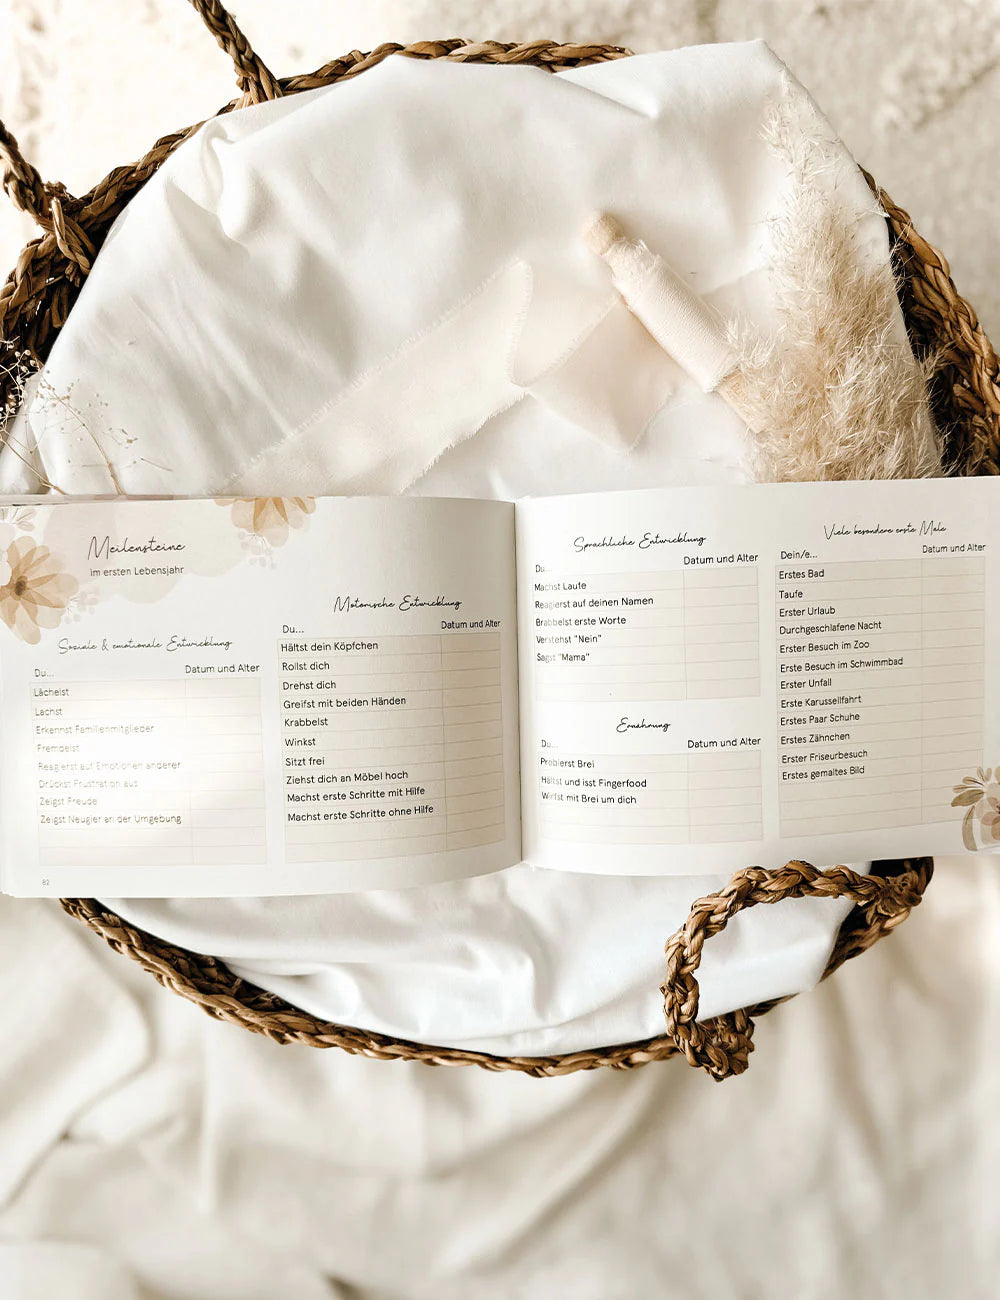 Meilensteine
im ersten Lebensjahr
Soziale & emotionale Entwicklung
Du... Datum und Alter
Lächelst
Lachst
Erkennst Familienmitglieder
Fremdelst
Reagierst auf Emotionen anderer
Drückst Frustration aus
Zeigst Freude
Zeigst Neugier an der Umgebung
82
Motorische Entwicklung
Du... Datum und Alter
Hältst dein Köpfchen
Rollst dich
Drehst dich
Greifst mit beiden Händen
Krabbelst
Winkst
Sitzt frei
Ziehst dich an Möbel hoch
Machst erste Schritte mit Hilfe
Machst erste Schritte ohne Hilfe
Sprachliche Entwicklung
Du... Datum und Alter
Machst Laute
Reagierst auf deinen Namen
Brabbelst erste Worte
Verstehst "Nein"
Sagst "Mama"
Ernährung
Du... Datum und Alter
Probierst Brei
Hältst und isst Fingerfood
Wirfst mit Brei um dich
Viele besondere erste Male
Dein/e... Datum und Alter
Erstes Bad
Taufe
Erster Urlaub
Durchgeschlafene Nacht
Erster Besuch im Zoo
Erste Besuch im Schwimmbad
Erster Unfall
Erste Karussellfahrt
Erstes Paar Schuhe
Erstes Zähnchen
Erster Friseurbesuch
Erstes gemaltes Bild